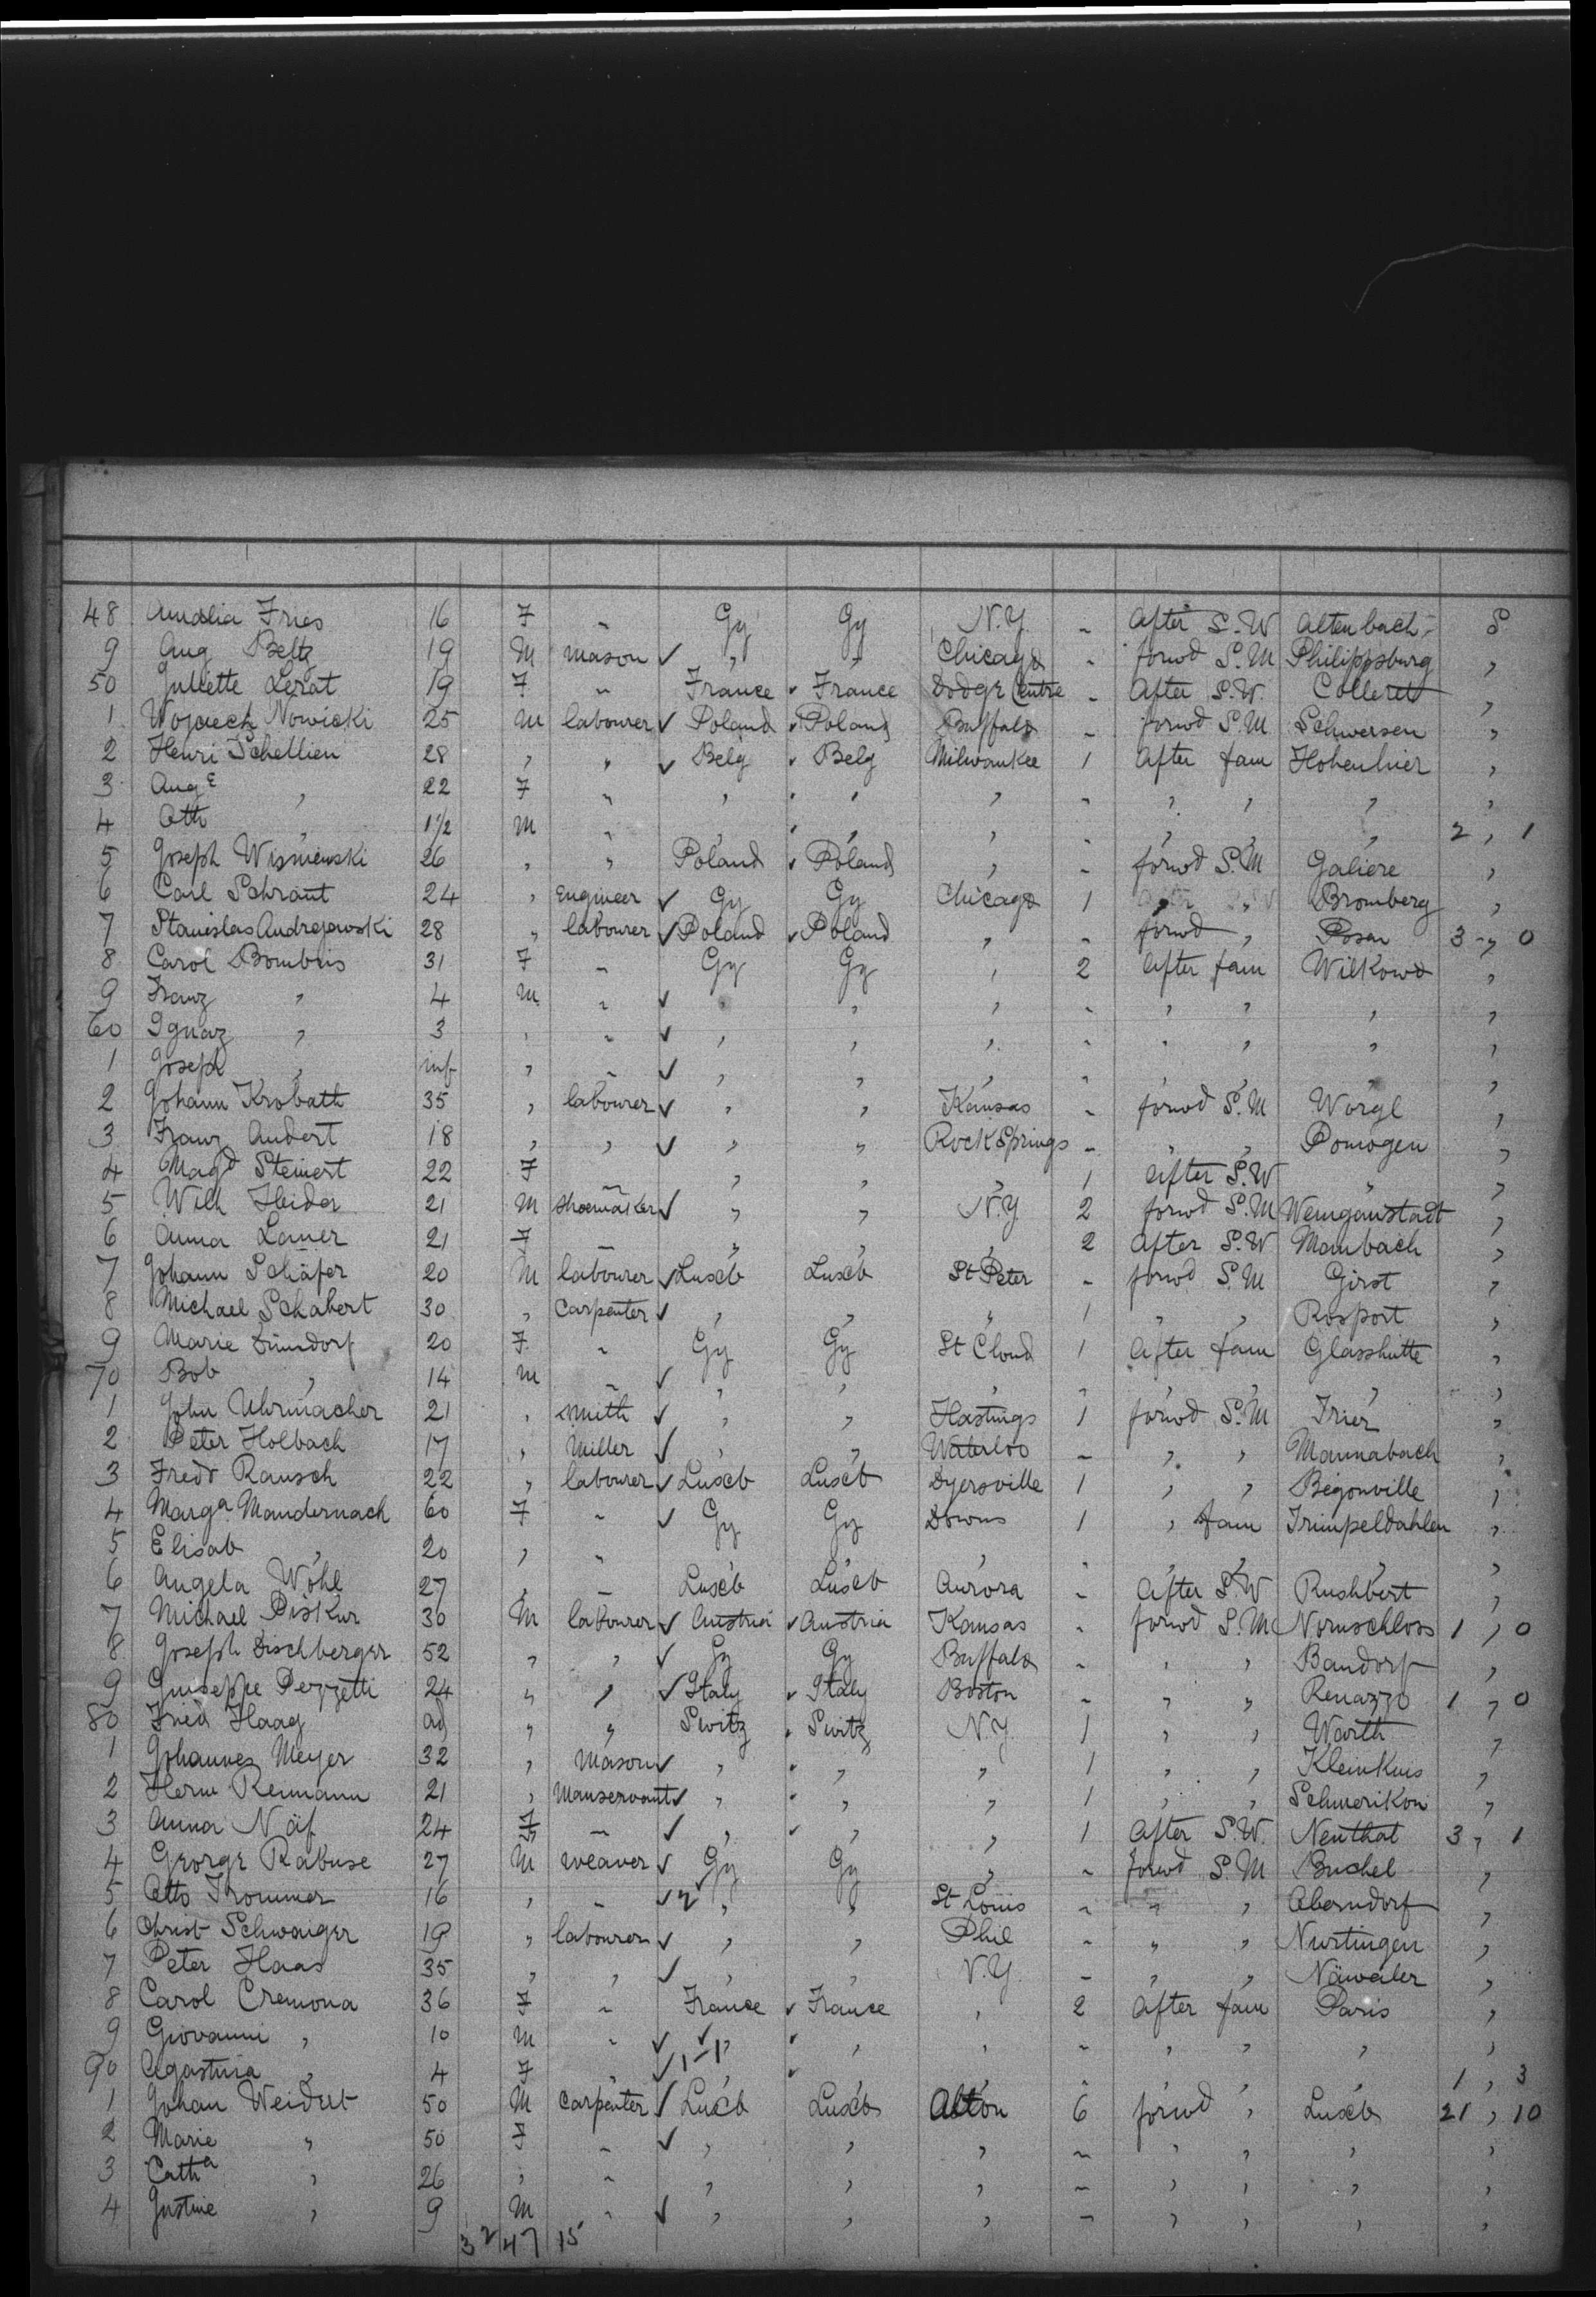 48 Amalia Fries 16 F ~ Gy Gy N.Y. ~ After S.W Altenbach S
9 Aug Beltz 19 M mason ✓ " " Chicago ~ forwd S.M Philippsburg "
50 Juliette Lerat 19 F ~ France ✓ France Dodge Centre ~ After S.W. Colleret "
1 Wojciech Nowicki 25 M labourer ✓ Poland ✓ Poland Buffalo ~ forwd S.M Schwersen "
2 Henri Schellien 28 " " ✓ Belg ✓ Belg Milwaukee 1 After fam Hohenhier "
3 Augᵉ " 22 F ~ " " " ~ " " " "
4 Oth " 1 1/2 M ~ " " " ~ " " " 2 , 1
5 Joseph Wisniewski 26 " " Poland ✓ Poland " ~ forwd S.M Galiere "
6 Carl Schraut 24 " Engineer ✓ Gy Gy Chicago 1 " " Bromberg "
7 Stanislas Andrejewski 28 " labourer ✓ Poland ✓ Poland " ~ forwd " Posen 3 , 0
8 Carol Bombris 31 F ~ Gy Gy " 2 After fam Wilkowo "
9 Franz " 4 M ~ ✓ " " " ~ " " " "
60 Ignaz " 3 " ~ ✓ " " " ~ " " " "
1 Joseph " inf " ~ ✓ " " " ~ " " " "
2 Johann Krobath 35 " labourer ✓ " " Kansas ~ forwd S.M Worgl "
3 Franz Aubert 18 " " ✓ " " Rock Springs ~ " " Pomogen "
4 Magᵈ Steinert 22 F ~ " " " 1 After S.W " "
5 Wilh Heider 21 M shoemaker ✓ " " N.Y 2 forwd S.M Wemganstadt "
6 Anna Lauer 21 F ~ " " " 2 After S.W Mambach "
7 Johann Schäfer 20 M labourer ✓ Luxb Luxb St Peter ~ forwd S.M Girst "
8 Michael Schabert 30 " Carpenter ✓ " " " 1 " " Rosport "
9 Marie Dumdorf 20 F ~ Gy Gy St Cloud 1 After fam Glasshutte "
70 Bob " 14 M ~ ✓ " " " " " " " "
1 John Uhrmacher 21 " smith ✓ " " Hastings 1 forwd S.M Trier "
2 Peter Holbach 17 " Miller ✓ " " Waterloo ~ " " Mannabach "
3 Fredr Rausch 22 " labourer ✓ Luxb Luxb Dyersville 1 " " Bégonville "
4 Margᵃ Mandernach 60 F ~ ✓ Gy Gy Downs 1 " fam Trimpeldahlen "
5 Elisab " 20 " ~ " " " ~ " " " "
6 Angela Wöhl 27 " ~ Luxb Luxb Aurora ~ After S.W Rushbert "
7 Michael Piskur 30 M labourer ✓ Austria ✓ Austria Kansas ~ forwd S.M Nornschloss 1 , 0
8 Joseph Dischberger 52 " " ✓ Gy Gy Buffalo ~ " " Bandorf "
9 Guiseppe Pezzetti 24 " " ✓ Italy ✓ Italy Boston ~ " " Renazzo 1 , 0
80 Fried Haag ad " " Switz ✓ Switz N.Y. 1 " " Warth "
1 Johannes Meyer 32 " Mason ✓ " " " 1 " " Kleinkuis "
2 Herm Reimann 21 " Manservant ✓ " " " 1 " " Schmerikon "
3 Anna Näf 24 F ~ ✓ " ✓ " " 1 After S.W. Neuthal 3 , 1
4 George Rabuse 27 M weaver ✓ Gy Gy " ~ forwd S.M Buchel "
5 Otto Trommer 16 " ~ ✓ 2 " " St Louis ~ " " Aberndorf "
6 Christ Schwaiger 19 " labourer ✓ " " Phil ~ " " Nurtingen "
7 Peter Haas 35 " " ✓ " " N.Y. ~ " " Näweiler "
8 Carol Cremona 36 F ~ France ✓ France " 2 After fam Paris "
9 Giovanni " 10 M ~ ✓ " " " ~ " " " "
90 Agostina " 4 F " ✓ 1-1 " " " ~ " " " 1 , 3
1 Johan Weidert 50 M Carpenter ✓ Luxb Luxb Alton 6 forwd " Luxb 21 , 10
2 Marie " 50 F ~ ✓ " " " ~ " " " "
3 Cathᵃ " 26 " ~ " " " ~ " " " "
4 Justine " 9 M ~ ✓ " " " ~ " " " "
32/47 15